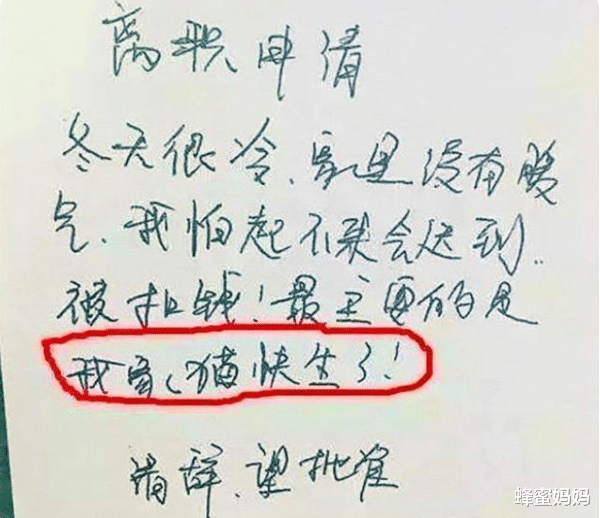 离职申请
冬天很冷、家里没有暖
气、我怕起不来会迟到、
被扣钱！最主要的是
我家猫快生了！
请辞、望批准
蜂蜜妈妈